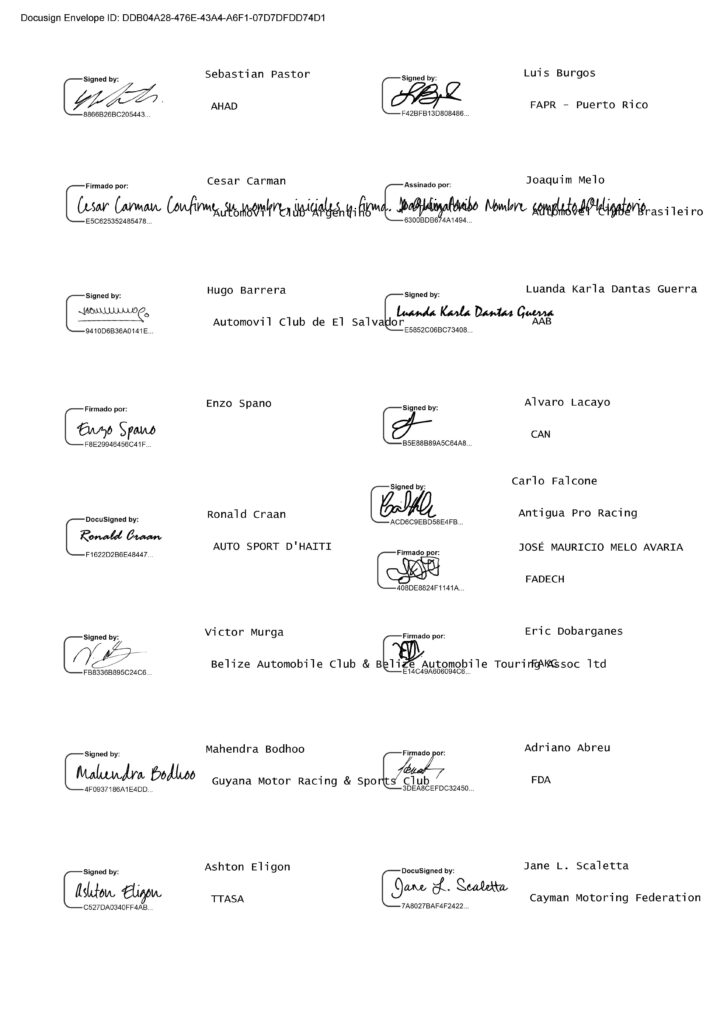 Docusign Envelope ID: DDB04A28-476E-43A4-A6F1-07D7DFDD74D1
Signed by:
8866B26BC205443...
Sebastian Pastor
AHAD
Signed by:
F42BFB13D808486...
Luis Burgos
FAPR - Puerto Rico
Firmado por:
Cesar Carman Confirme su nombre, iniciales y firma.
E5C625352485478...
Cesar Carman
Automovil Club Argentino
Assinado por:
Nombre completo Obligatorio
6300BDB674A1494...
Joaquim Melo
Automovel Clube Brasileiro
Signed by:
9410D6B36A0141E...
Hugo Barrera
Automovil Club de El Salvador
Signed by:
Luanda Karla Dantas Guerra
E5852C06BC73408...
Luanda Karla Dantas Guerra
AAB
Firmado por:
Enzo Spano
F8E29946456C41F...
Enzo Spano
Signed by:
B5E88B89A5C64A8...
Alvaro Lacayo
CAN
DocuSigned by:
Ronald Craan
F1622D2B6E48447...
Ronald Craan
AUTO SPORT D'HAITI
Signed by:
ACD6C9EBD58E4FB...
Carlo Falcone
Antigua Pro Racing
Firmado por:
408DE8824F1141A...
JOSÉ MAURICIO MELO AVARIA
FADECH
Signed by:
FB8336B895C24C6...
Victor Murga
Belize Automobile Club & Belize Automobile Touring Assoc ltd
Firmado por:
E14C49A606094C6...
Eric Dobarganes
Signed by:
Mahendra Bodhoo
4F0937186A1E4DD...
Mahendra Bodhoo
Guyana Motor Racing & Sports Club
Firmado por:
3DEA8CEFDC32450...
Adriano Abreu
FDA
Signed by:
Ashton Eligon
C527DA0340FF4AB...
Ashton Eligon
TTASA
DocuSigned by:
Jane L. Scaletta
7A8027BAF4F2422...
Jane L. Scaletta
Cayman Motoring Federation